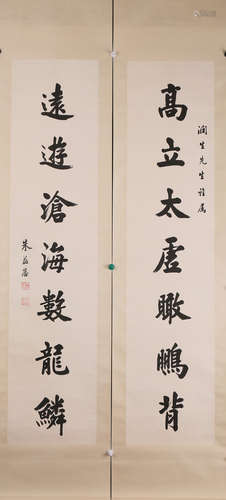 高立太虛瞰鵬背
潤生先生雅属
遠遊滄海數龍鱗
朱益藩